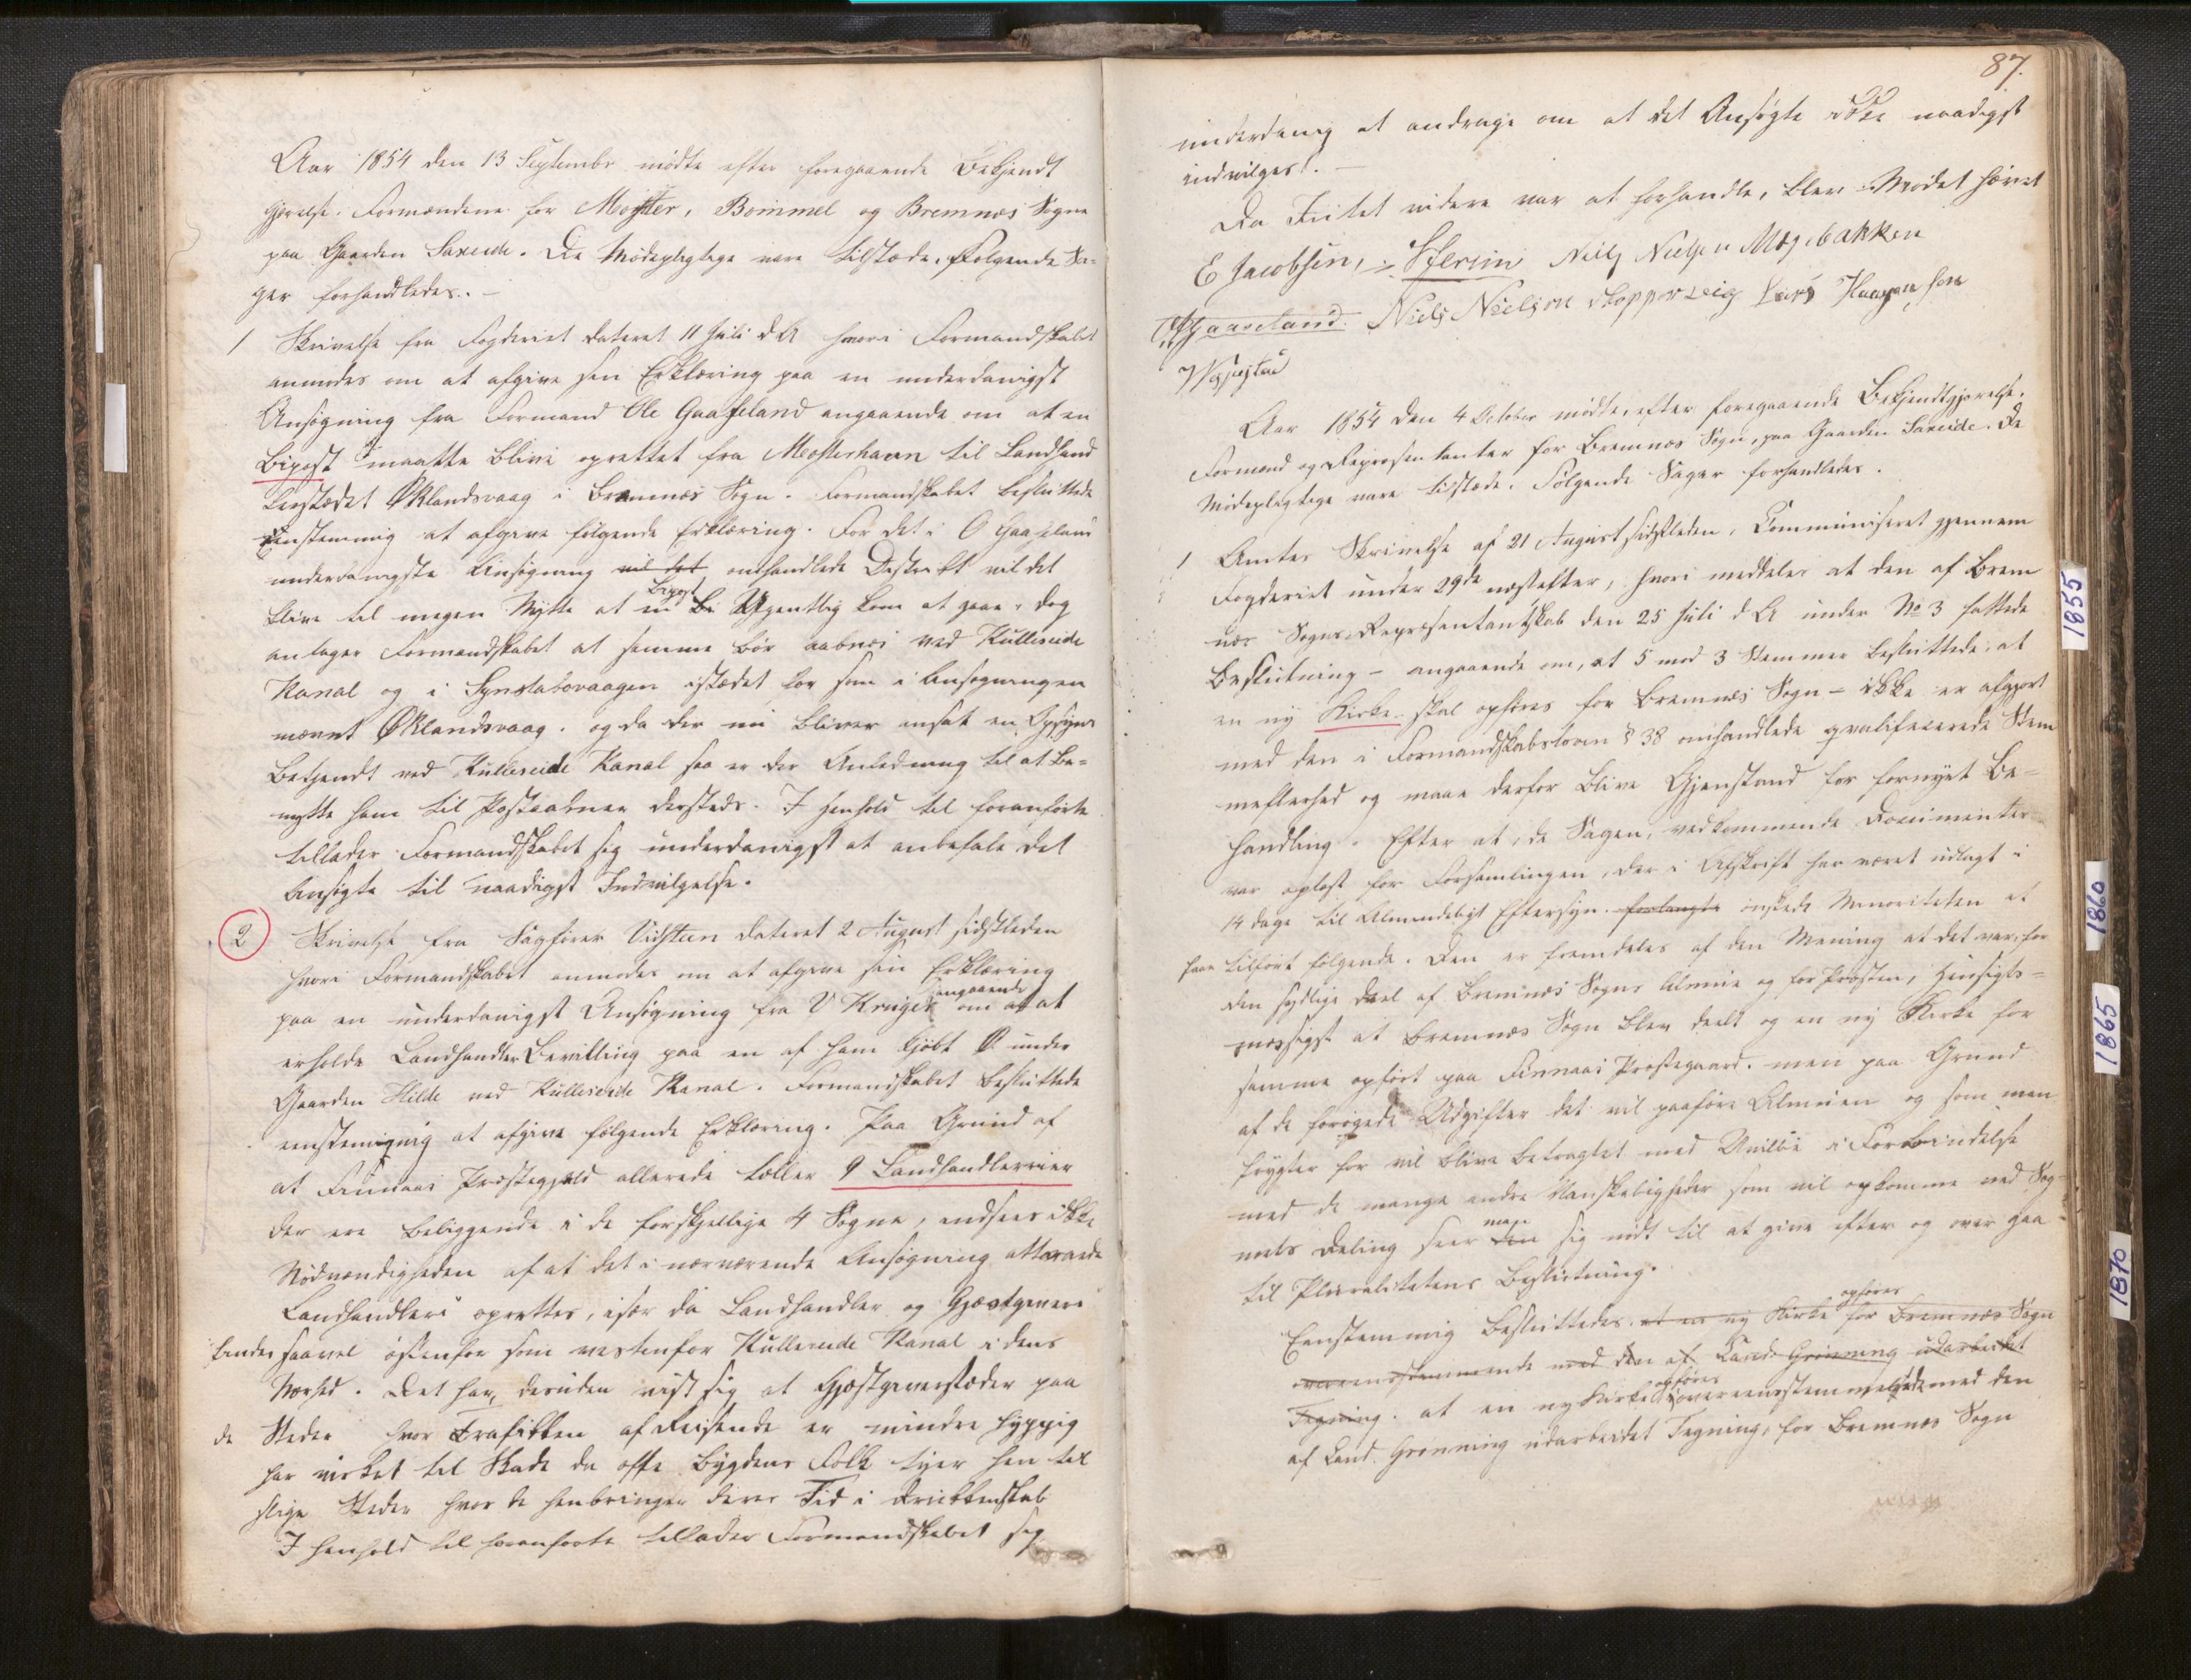 Aar 1854 den 13 Septembr mødte efter foregaaende Bekjendt
gjørelse. Formændene for Moster, Bømmel og Bremnæs Sogne
paa Gaarden Saxeide. De Mødepligtige vare tilstæde. Følgende Sa-
ger forhandledes. -
1 Skrivelse fra Fogderiet dateret 11 Juli d A hvori Formandskabet
anmodes om at afgive sin Erklæring paa en underdanigst
Ansøgning fra Formand Ole Gaaseland angaaende om at en
Bipost maatte blive oprettet fra Mosterhavn til Landhand
lerstædet Øklandsvaag i Bremnæs Sogn. Formandskabet besluttede
Eenstemmig at afgive følgende Erklæring. For det i O Gaaseland
underdanigste Ansøgning vil det omhandlede Distrikt vil det
blive til megen Nytte at en Bi Bipost Ugentlig kom at gaae, dog
antager Formandskabet at samme bør aabnes ved Kulleseide
Kanal og i Synstabøvaagen istædet for som i Ansøgningen
nævnt Øklandsvaag. og da der nu bliver ansat en Opsyns
Betjendt ved Kulleseide Kanal saa er der Anledning til at Be-
nytte ham til Postaabner dersteds. I Henhold til foranførte
tillader Formandskabet sig underdanigst at anbefale det
Ansøgte til naadigst Indvilgelse.
2 Skrivelse fra Sagfører Vidsteen dateret 2 August sidstleden
hvori Formandskabet anmodes om at afgive sin Erklæring
paa en underdanigst Ansøgning fra V Krüger angaaende om at at
erholde Landhandler Bevilling paa en af ham kjøbt Ø under
Gaarden Hilde ved Kulleseide Kanal. Formandskabet besluttede
eenstemmig at afgive følgende Erklæring. Paa Grund af
at Finnaas Præstegjeld allerede tæller 9 Landhandlerier
der ere beliggende i de forskjellige 4 Sogne, indsees ikke
Nødvændigheden af at det i nærværende Ansøgning attraaede
Landhandleri oprettes, især da Landhandler og Gjæstgiveri
findes saavel østenfor som vestenfor Kulleseide Kanal i dens
Nærhed. Det har desuden vist sig at Gjæstgiverstæder paa
de Steder hvor Trafikken af Reisende er mindre hyppig
har virket til Skade da ofte Bygdens Folk tyer hen til
slige Steder hvor de henbringer deres Tid i Drukkenskab
I Henhold til foranførte tillader Formandskabet sig
87.
underdanig at andrage om at det Ansøgte ikke naadigst
indvilges. -
Da Intet videre var at forhandle, blev Mødet hævet
E Jacobsen, Niels Nielsen Mæhebakken
Gaaseland. Niels Nielsen Koppervig Lars Haagensen
Aar 1854 den 4 October mødte, efter foregaaende Bekjendtgjørelse.
Formænd og Repræsentanter for Bremnæs Sogn, paa Gaarden Saxeide. De
Mødepligtige vare tilstæde. Følgende Sager forhandledes.
1 Amtes Skrivelse af 21 August sidstleden, Communiseret gjennem
Fogderiet under 29de næstefter, hvori meddeles at den af Brem
næs Sogns Repræsentantskab den 25 Juli d A under No 3 fattede
Beslutning - angaaende om, at 5 mod 3 Stemmer besluttede, at
en ny Kirke skal opføres for Bremnæs Sogn - ikke er afgjort
med den i Formandskabsloven § 38 omhandlede qvalificerede Stem
mefleerhed og maae derfor blive Gjenstand for fornyet Be-
handling. Efter at de Sagen, vedkommende Documenter
var oplæst for Forsamlingen, der i Afskrift har været udlagt i
14 dage til Almindeligt Eftersyn. forlangte ønskede Minoriteten at
faae tilført følgende. Den er fremdeles af den Mening at det var for
den sydlige Deel af Bremnæs Sogns Almue og for Præsten, Hensigts-
mæssigst at Bremnæs Sogn blev deelt og en ny Kirke for
samme opført paa Finnaas Præstegaard. men paa Grund
af de forøgede Udgifter det vil paaføre Almuen og som man
frygter for vil blive betragtet med Uvillie i Forbindelse
med de mange andre Vanskeligheder som vil opkomme ved Sog-
nets Deling seer den man sig nødt til at give efter og over gaa
til Pluralitetens Beslutning.
Eenstemmig besluttedes at en ny Kirke opføres for Bremnæs Sogn
overeensstemmende med den af Cand. Grønning udarbeidet
Tegning. at en ny Kirke opføres i overeensstemmelse med den
af Cand. Grønning udarbeidet Tegning, for Bremnæs Sogn
1855
1860
1865
1870